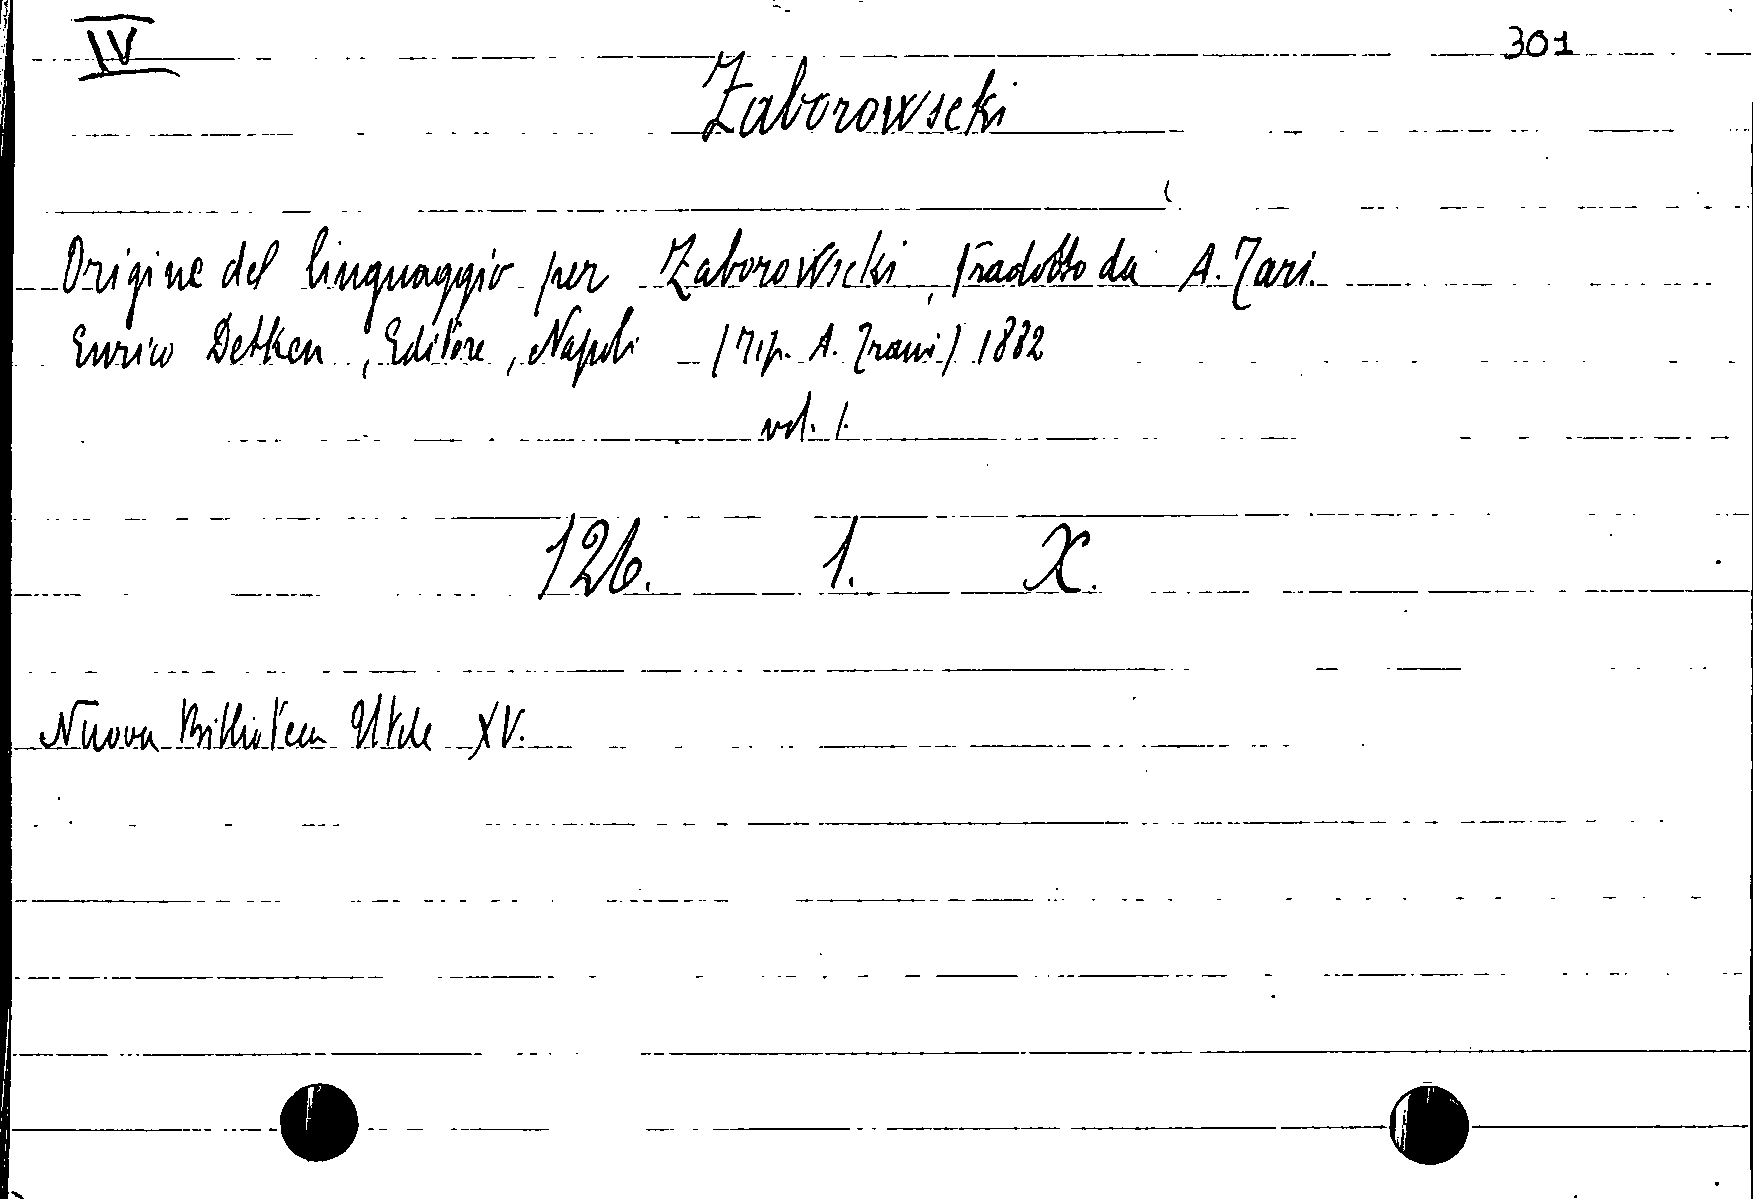 IV
301
Zaborowscki
Origine del linguaggio per Zaborowscki, tradotto da A. Tari.
Enrico Detken, Editore, Napoli (Tip. A. Trani) 1882
vol. 1.
126. 1. X.
Nuova Biblioteca Utile XV.